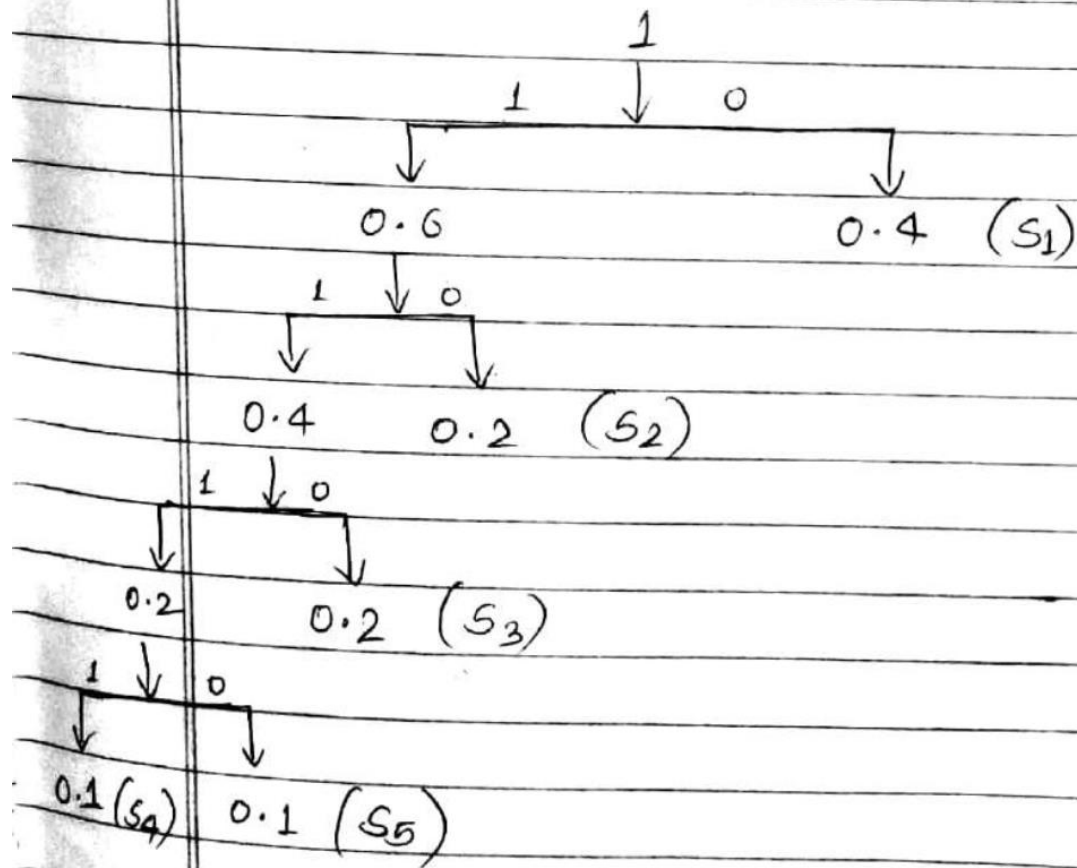 1
1 0
0.6 0.4 (S1)
1 0
0.4 0.2 (S2)
1 0
0.2 0.2 (S3)
1 0
0.1 (S4) 0.1 (S5)